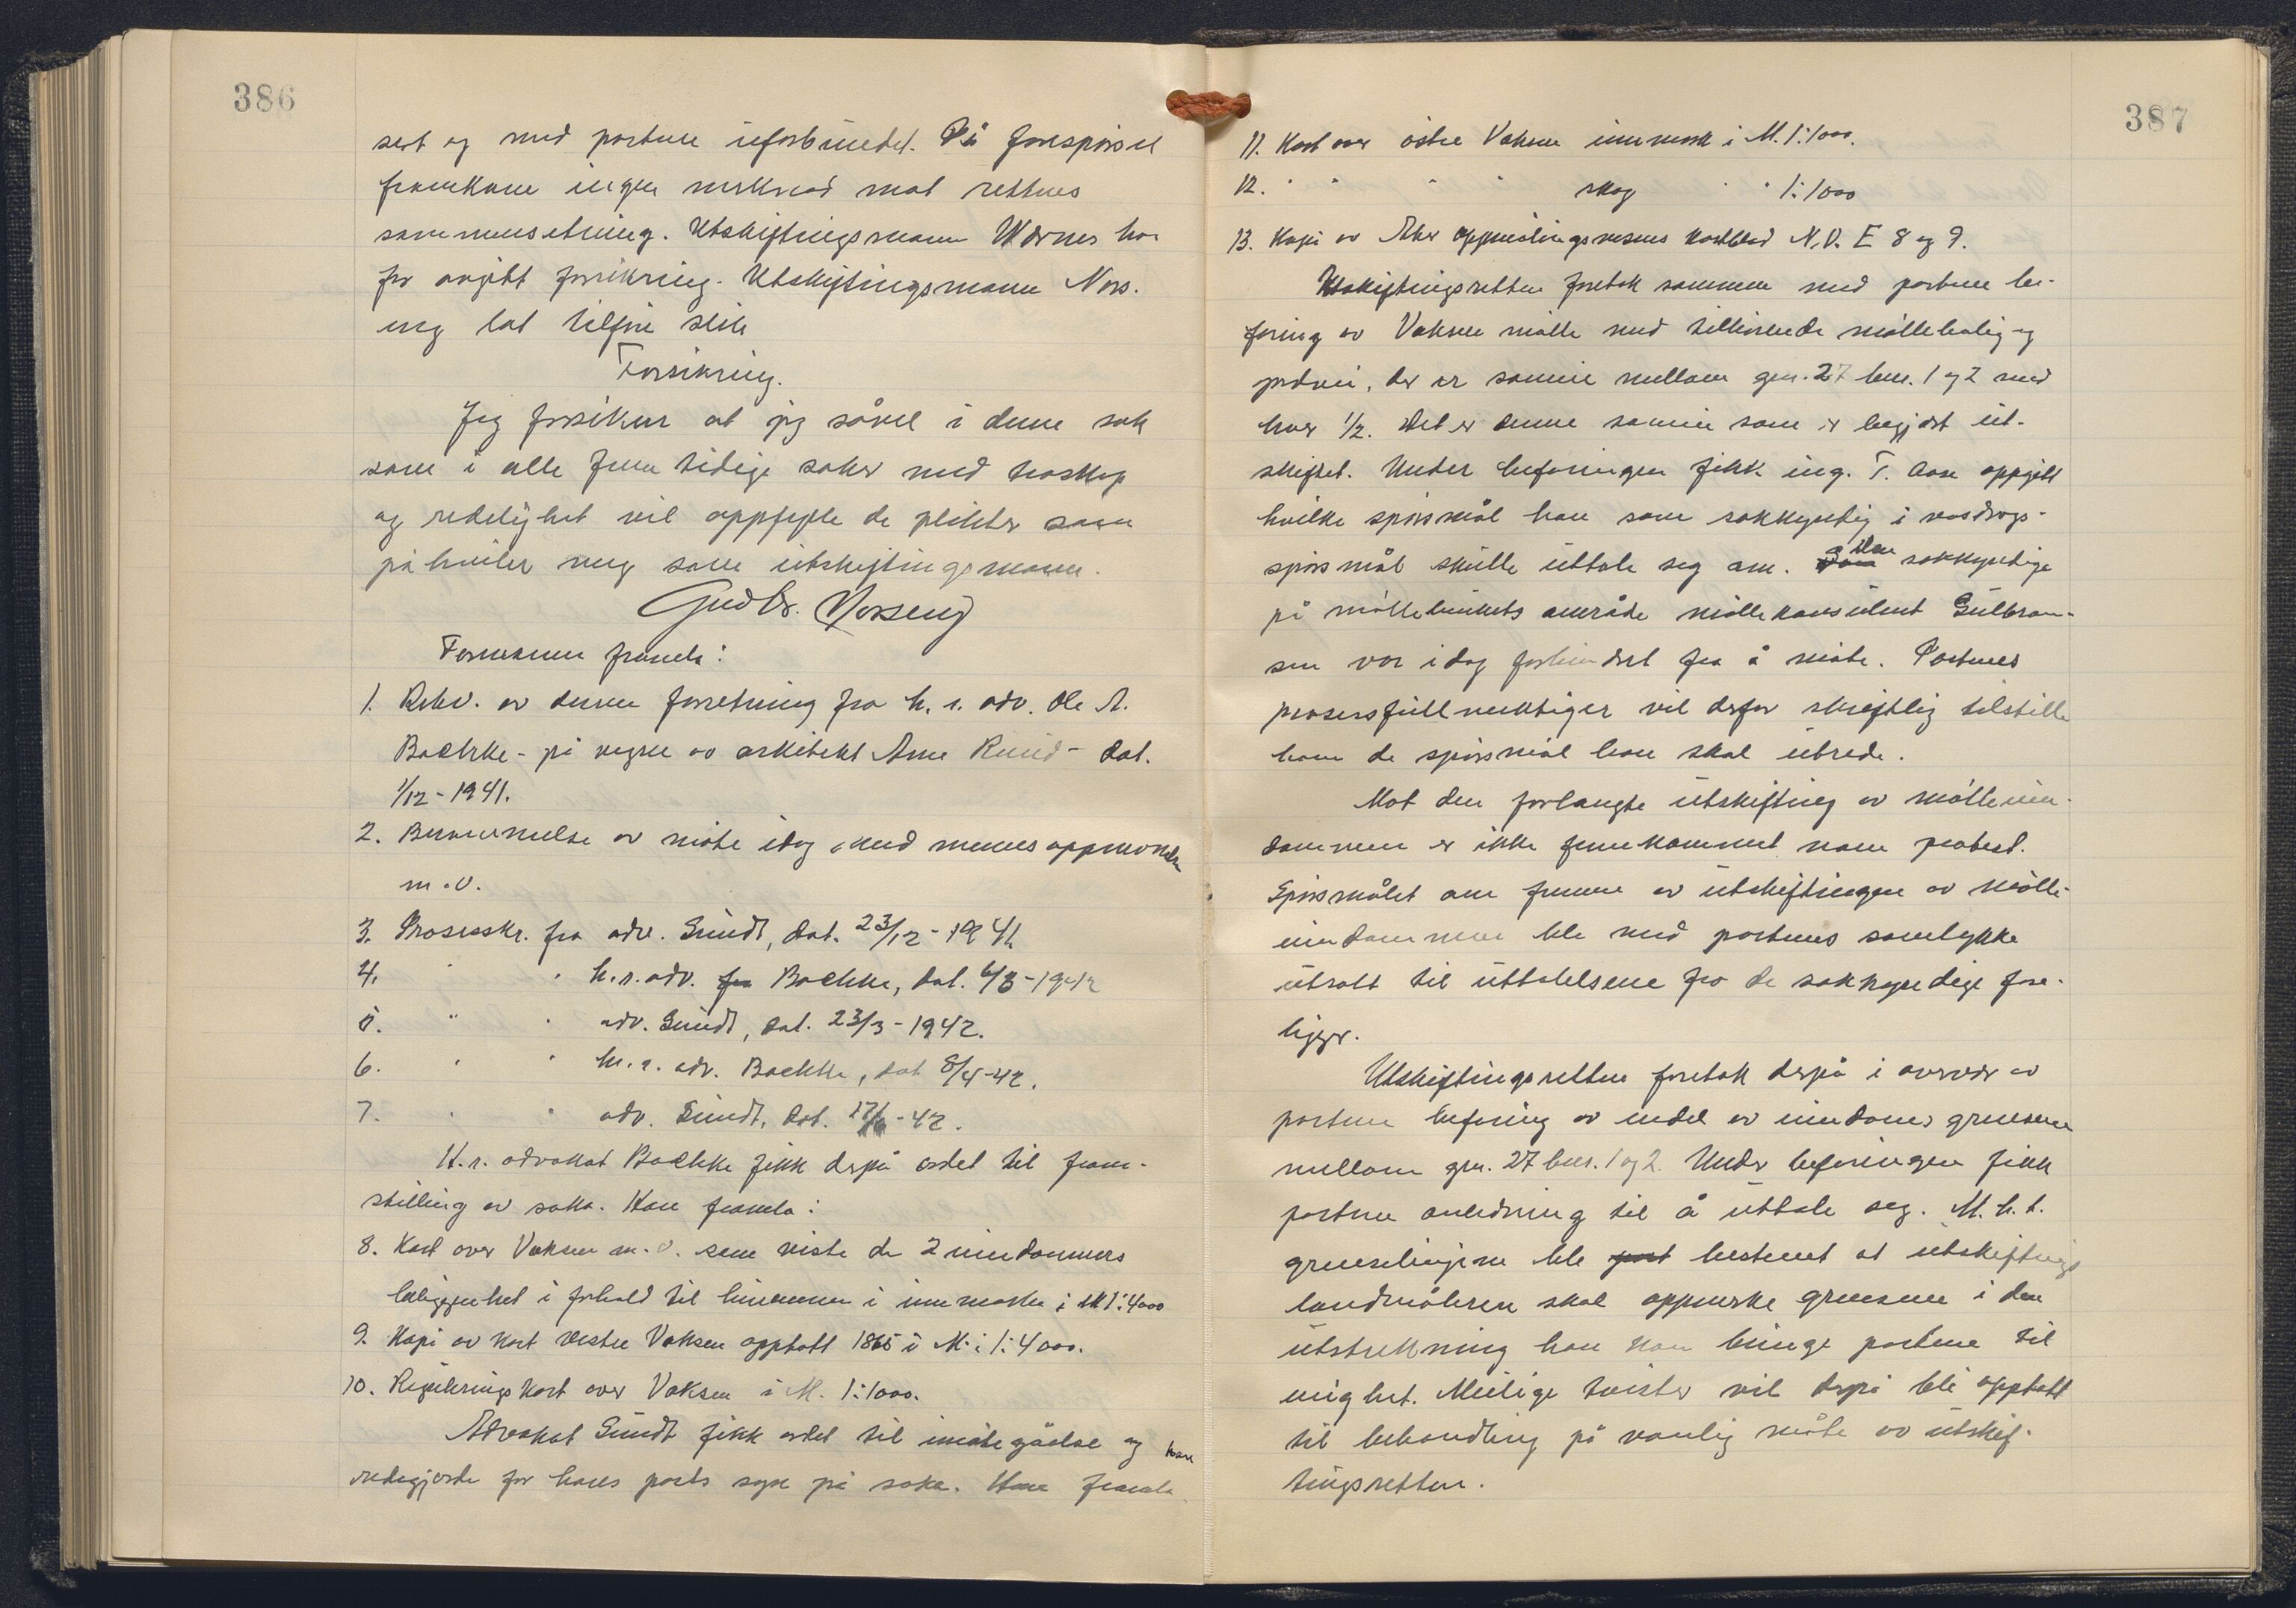 386
sert og med partene uforbundet. På forespørsel
framkom ingen merknad mot rettens
sammensetning. Utskiftingsmann Wærnes har
før avgitt forsikring. Utskiftingsmann Nors-
eng lot tilføie slik
Forsikring.
Jeg forsikrer at jeg såvel i denne sak
som i alle fremtidige saker med troskap
og redelighet vil oppfylle de plikter som
påhviler meg som utskiftingsmann.
Gudbr. Norseng
Formannen framla:
1. Rekv. av denne forretning fra h. r. adv. Ole A.
Bachke - på vegne av arkitekt Arne Ruud - dat.
1/12-1941.
2. Berammelse av møte idag med mennesoppnevnelse
m.v.
3. Prosesskr. fra adv. Sundt, dat. 23/12-1941
4. " " h.r.adv. fra Bachke, dat. 6/3-1942
5. " " adv. Sundt, dat. 23/3-1942.
6. " " h.r. adv. Bachke, dat 8/4-42.
7. " " adv. Sundt, dat. 17/6-42.
H.r. advokat Bachke fikk derpå ordet til fram-
stilling av saka. Han framla:
8. Kart over Voksen m.v. som viste de 2 eiendommers
beliggenhet i forhold til hinannen i innmarka i M 1:4000
9. Kopi av kart Vestre Voksen opptatt 1865 i M. i 1:4000.
10. Reguleringskart over Voksen i M. 1:1000.
Advokat Sundt fikk ordet til imøtegåelse og han
redegjorde for hans parts syn på saka. Han framla
387
11. Kart over østre Voksen innmark i M. 1:1000.
12. " " " " skog " " 1:1000
13. Kopi av Aker oppmålingsvesens kartblad N.V. E 8 og 9.
Utskiftingsretten foretok sammen med partene be-
faring av Voksen mølle med tilhørende møllebolig og
prdvei, der er sameie mellom gnr. 27 bnr. 1 og 2 med
hver 1/2. Det er denne sameie som er begjært ut-
skiftet. Under befaringen fikk ing. T. Aase oppgitt
hvilke spørsmål han som sakkyndig i vasdrags-
spørsmål skulle uttale seg om. Den sakkyndige
på møllebrukets område møllekonsulent Gulbran-
sen var idag forhindret fra å møte. Partenes
prosessfullmektiger vil derfor skriftlig tilstille
ham de spørsmål han skal utrede.
Mot den forlangte utskifting av mølleeien-
dommen er ikke fremkommet noen protest.
Spørsmålet om fremme av utskiftingen av mølle-
eiendommen ble med partenes samtykke
utsatt til uttalelsene fra de sakkyndige fore-
ligger.
Utskiftingsretten foretok derpå i overvær av
partene befaring av endel av eiendoms grensene
mellom gnr. 27 bnr. 1 og 2. Under befaringen fikk
partene anledning til å uttale seg. M.h.t.
grenselinjene ble bestemt at utskiftings
landmåleren skal oppmerke grensene i den
utstrekning han kan bringe partene til
enighet. Mulige tvister vil derpå bli opptatt
til behandling på vanlig måte av utskif-
tingsretten.